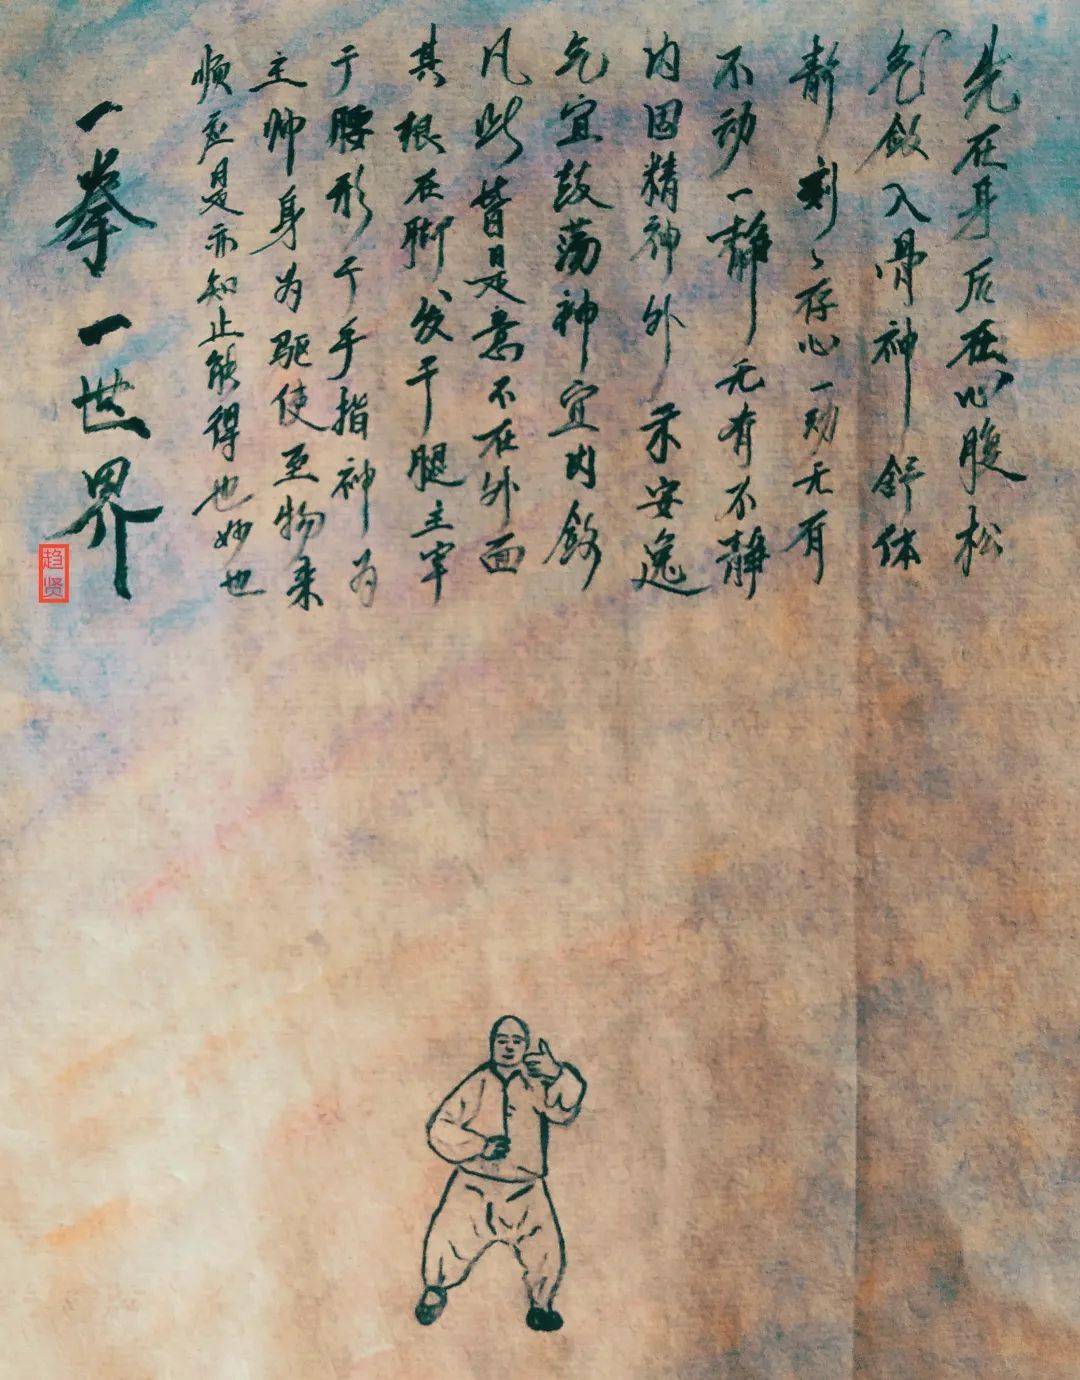 先在身后在心腹松
气敛入骨神舒体
静刻々存心一动无有
不动一静无有不静
内固精神外示安逸
气宜鼓荡神宜内敛
凡此皆是意不在外面
其根在脚发于腿主宰
于腰形于手指神为
主帅身为驱使至物来
顺应是亦知止能得也妙也
一拳一世界
趋贤